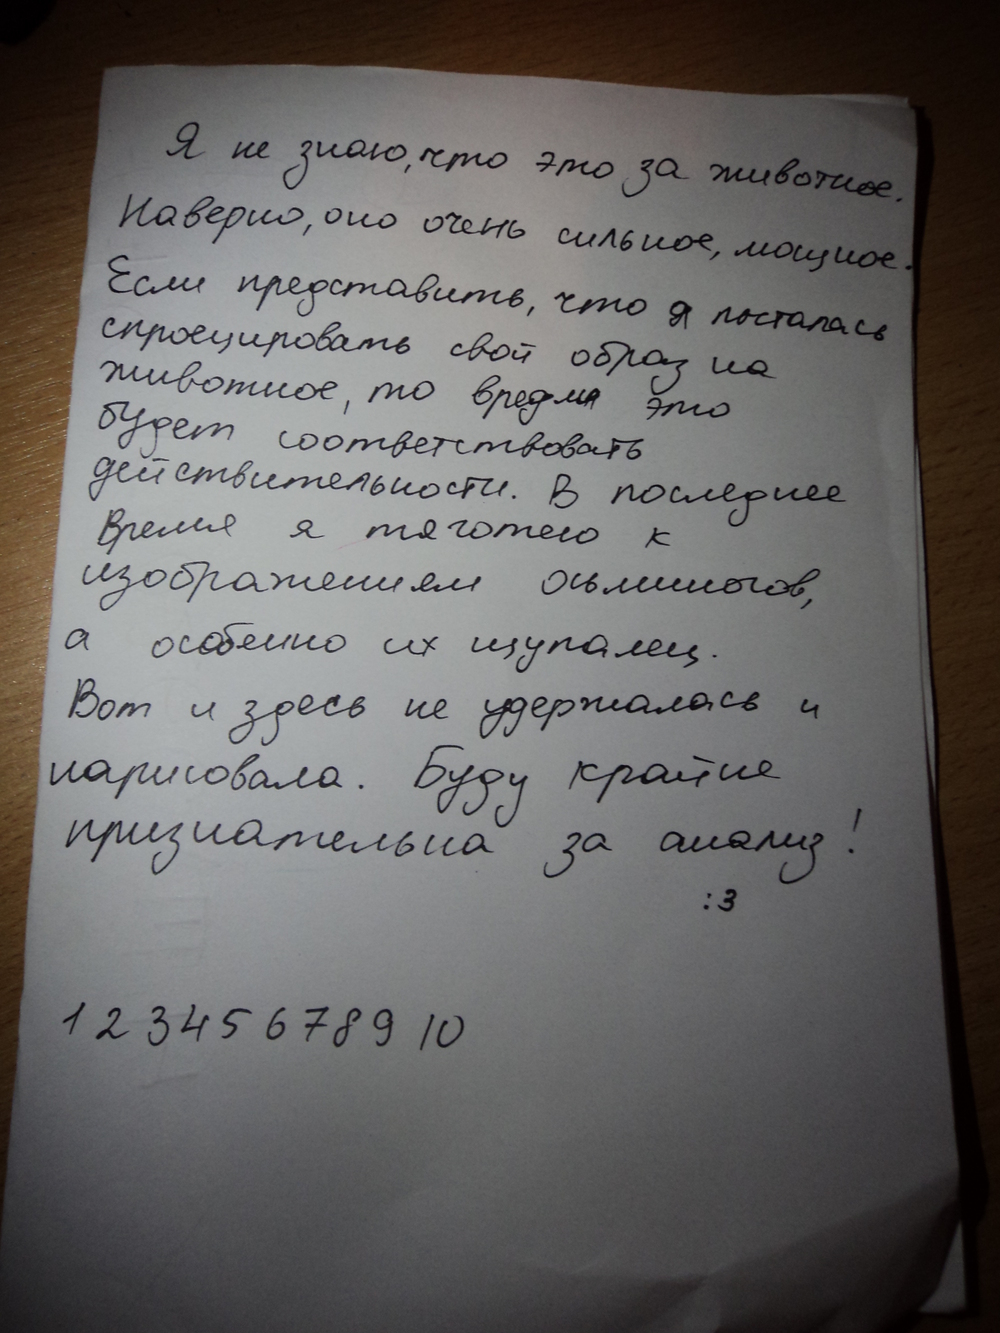 Я не знаю, что это за животное.
Наверно, оно очень сильное, мощное.
Если представить, что я пыталась
спроецировать свой образ на
животное, то вредли это
будет соответствовать
действительности. В последнее
время я тяготею к
изображениям осьминогов,
а особенно их щупалец.
Вот и здесь не удержалась и
нарисовала. Буду крайне
признательна за анализ!
:3
1 2 3 4 5 6 7 8 9 10